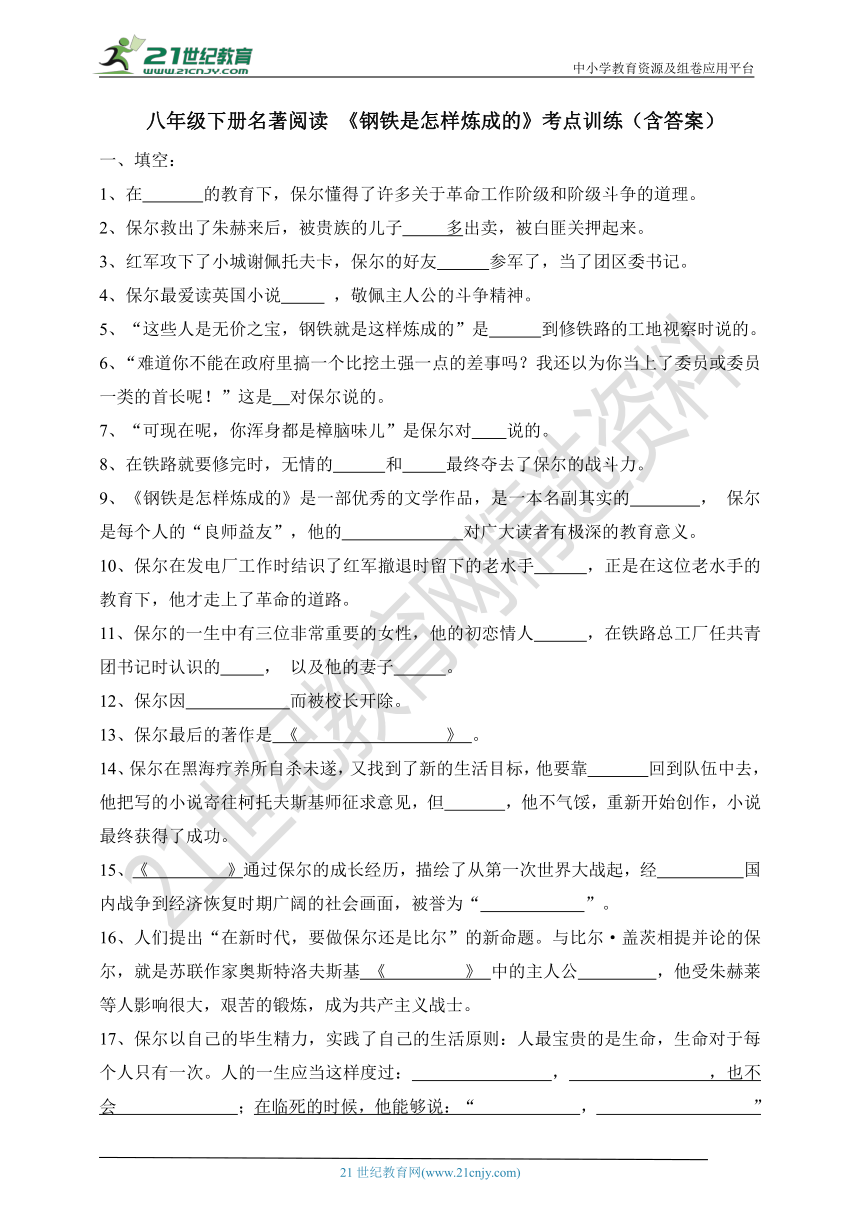 21世纪教育
WWW.21CNJY.COM
中小学教育资源及组卷应用平台
八年级下册名著阅读 《钢铁是怎样炼成的》考点训练（含答案）
一、填空：
1、在______的教育下，保尔懂得了许多关于革命工作阶级和阶级斗争的道理。
2、保尔救出了朱赫来后，被贵族的儿子____多出卖，被白匪关押起来。
3、红军攻下了小城谢佩托夫卡，保尔的好友_____参军了，当了团区委书记。
4、保尔最爱读英国小说____ ，敬佩主人公的斗争精神。
5、“这些人是无价之宝，钢铁就是这样炼成的”是_____到修铁路的工地视察时说的。
6、“难道你不能在政府里搞一个比挖土强一点的差事吗？我还以为你当上了委员或委员
一类的首长呢！”这是__对保尔说的。
7、“可现在呢，你浑身都是樟脑味儿”是保尔对___说的。
8、在铁路就要修完时，无情的_____和____最终夺去了保尔的战斗力。
9、《钢铁是怎样炼成的》是一部优秀的文学作品，是一本名副其实的_______， 保尔
是每个人的“良师益友”，他的___________对广大读者有极深的教育意义。
10、保尔在发电厂工作时结识了红军撤退时留下的老水手_____，正是在这位老水手的
教育下，他才走上了革命的道路。
11、保尔的一生中有三位非常重要的女性，他的初恋情人_____，在铁路总工厂任共青
团书记时认识的____， 以及他的妻子_____。
12、保尔因__________而被校长开除。
13、保尔最后的著作是 《______________》 。
14、保尔在黑海疗养所自杀未遂，又找到了新的生活目标，他要靠______回到队伍中去，
他把写的小说寄往柯托夫斯基师征求意见，但______，他不气馁，重新开始创作，小说
最终获得了成功。
15、《________》通过保尔的成长经历，描绘了从第一次世界大战起，经________国
内战争到经济恢复时期广阔的社会画面，被誉为“__________”。
16、人们提出“在新时代，要做保尔还是比尔”的新命题。与比尔·盖茨相提并论的保
尔，就是苏联作家奥斯特洛夫斯基 《________》 中的主人公_______，他受朱赫莱
等人影响很大，艰苦的锻炼，成为共产主义战士。
17、保尔以自己的毕生精力，实践了自己的生活原则：人最宝贵的是生命，生命对于每
个人只有一次。人的一生应当这样度过：_____________，_____________，也不
会___________；在临死的时候，他能够说：“__________，______________”
21世纪教育网精选资料
21世纪教育网(www.21cnjy.com)